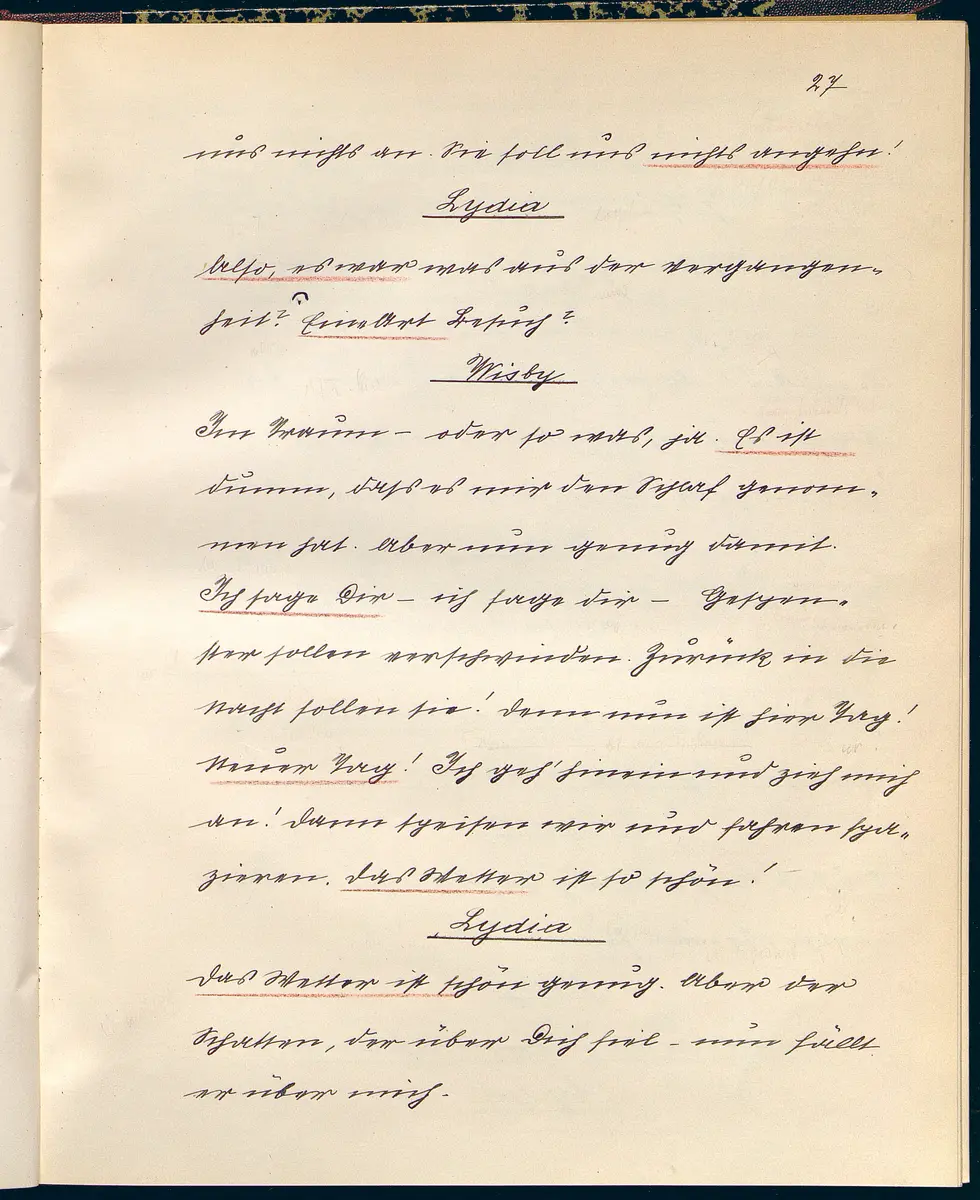 27
uns nichts an. Sie soll uns nichts angehn!
Lydia
Also, es war was aus der Vergangen-
heit? Eine Art Besuch?
Wisby
Im Traum – oder so was, ja. Es ist
dumm, dass es mir den Schlaf genom-
men hat. Aber nun genug damit.
Ich sage Dir – ich sage dir – Gespen-
ster sollen verschwinden. Zurück in die
Nacht sollen sie! Denn nun ist hier Tag!
Neuer Tag! Ich geh' hinein und zieh mich
an! Dann speisen wir und fahren spa-
zieren. Das Wetter ist so schön!
Lydia
Das Wetter ist schön genug. Aber der
Schatten, der über Dich fiel – nun fällt
er über mich.